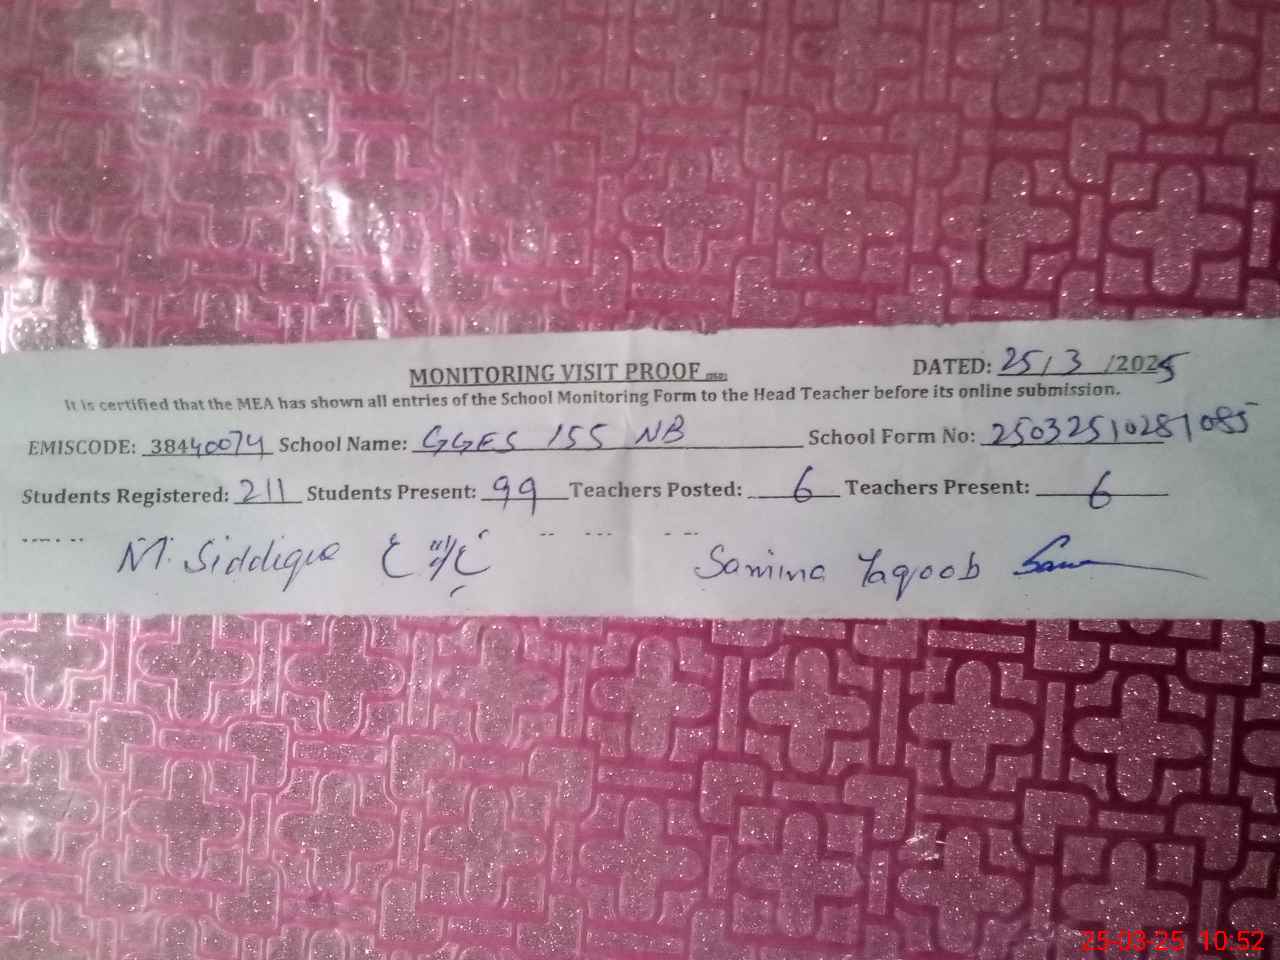 MONITORING VISIT PROOF
DATED: 25/3/2025
It is certified that the MEA has shown all entries of the School Monitoring Form to the Head Teacher before its online submission.
EMISCODE: 38440074 School Name: GGES 155 NB School Form No: 25032510281085
Students Registered: 211 Students Present: 99 Teachers Posted: 6 Teachers Present: 6
M. Siddique Samina Yaqoob
25-03-25 10:52